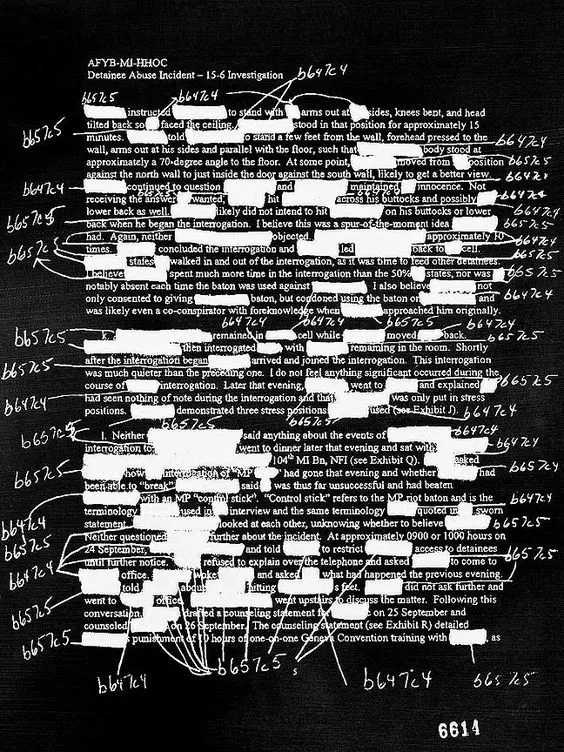 AFYB-MI-HHOC
Detainee Abuse Incident – 15-6 Investigation
b647c4
b657c5 b647c4
instructed to stand with arms out at sides, knees bent, and head
tilted back so faced the ceiling. stood in that position for approximately 15
b657c5
minutes. told to stand a few feet from the wall, forehead pressed to the
wall, arms out at his sides and parallel with the floor, such that body stood at b647c4
approximately a 70-degree angle to the floor. At some point, moved from position b657c5
against the north wall to just inside the door against the south wall, likely to get a better view.
b647c4 continued to question and maintained innocence. Not
receiving the answer wanted, hit across his buttocks and possibly b647c4
lower back as well. likely did not intend to hit on his buttocks or lower b647c4
b657c5
back when he began the interrogation. I believe this was a spur-of-the-moment idea b657c5
had. Again, neither objected. approximately 10
times. concluded the interrogation and led back to cell. b647c4
b657c5
states walked in and out of the interrogation, as it was time to feed other detainees. b657c5
I believe spent much more time in the interrogation than the 50% states, nor was b657c5
notably absent each time the baton was used against I also believe not b657c5
only consented to giving baton, but condoned the baton on and b647c4
was likely even a co-conspirator with foreknowledge when approached him originally.
b647c4 b647c4 b657c5 b647c4
b657c5 k. remained in cell while moved back. b657c5
then interrogated with remaining in the room. Shortly
b657c5 after the interrogation began arrived and joined the interrogation. This interrogation
was much quieter than the preceding one. I do not feel anything significant occurred during the
course of interrogation. Later that evening, went to and explained b657c5
b647c4 had seen nothing of note during the interrogation and that was only put in stress
positions. demonstrated three stress positions used (see Exhibit J). b647c4
b657c5 b657c5
b657c5 l. Neither said anything about the events of
interrogation to went to dinner later that evening and sat with b647c4
104th MI Bn, NFI (see Exhibit Q). asked
b657c5 how interrogation of "MP" had gone that evening and whether had
been able to "break" said was thus far unsuccessful and had beaten
with an MP "control stick". "Control stick" refers to the MP riot baton and is the b647c4
terminology used in interview and the same terminology quoted in sworn
b647c4 statement. looked at each other, unknowing whether to believe b657c5
b657c5 Neither questioned further about the incident. At approximately 0900 or 1000 hours on
24 September, and told to restrict access to detainees b657c5
b647c4 until further notice. refused to explain over the telephone and asked to come to
office. woke and asked what had happened the previous evening.
told about hitting s feet. did not ask further and
b657c5 went to office. went upstairs to discuss the matter. Following this
conversation a counseling statement for on 25 September and
counseled on 26 September. The counseling statement (see Exhibit R) detailed
b657c5 punishment of 10 hours of one-on-one Geneva Convention training with as
b657c5
b647c4 b647c4 b657c5
6614